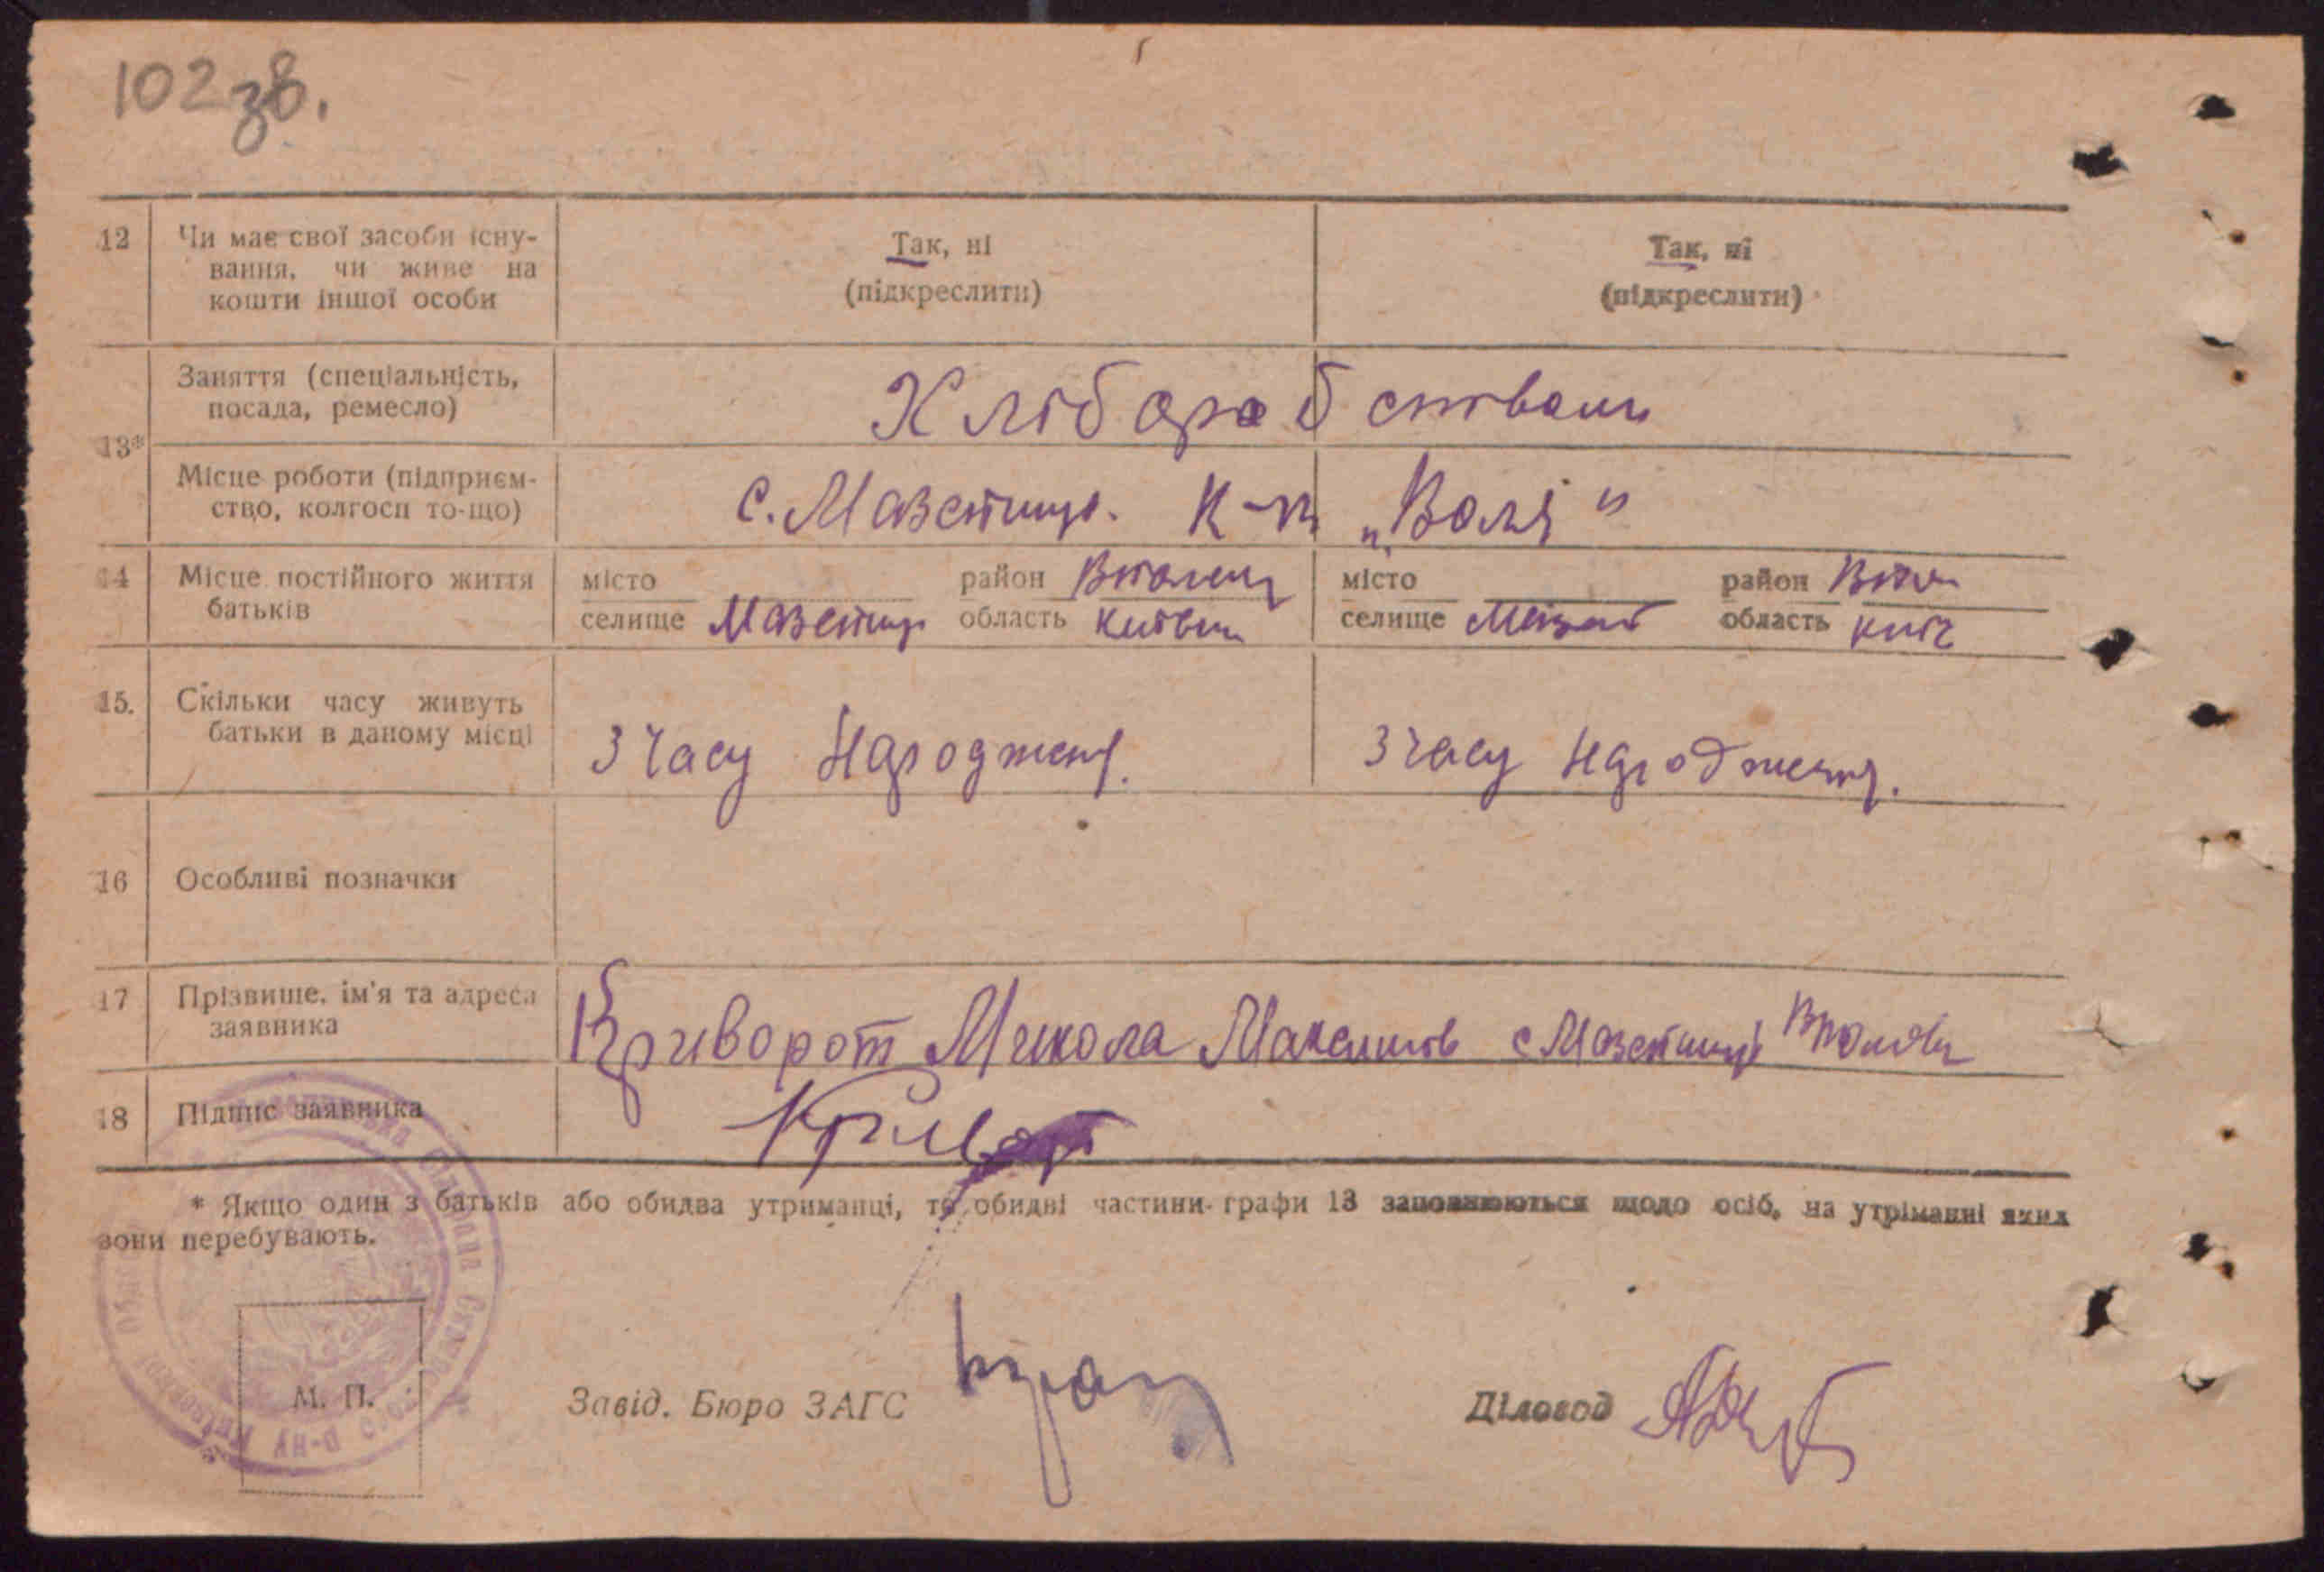 102 зв.
12 Чи має свої засоби існу-
вання, чи живе на
кошти іншої особи
Так, ні
(підкреслити)
Так, ні
(підкреслити)
13*
Заняття (спеціальність,
посада, ремесло)
Хліборобством
Місце роботи (підприєм-
ство, колгосп то-що)
с. Мазепинці. К-п „Воля"
14 Місце постійного життя
батьків
місто район
селище Мазепинці область Київськ
місто район
селище область Київ
15. Скільки часу живуть
батьки в даному місці
З часу народженя.
З часу народження.
16 Особливі позначки
17 Прізвище, ім'я та адреса
заявника
Криворот Микола Максимов с Мазепинці
18 Підпис заявника
* Якщо один з батьків або обидва утриманці, то обидві частини графи 13 заповнюються щодо осіб, на утріманні яких
вони перебувають.
М. П.
Завід. Бюро ЗАГС
Діловод